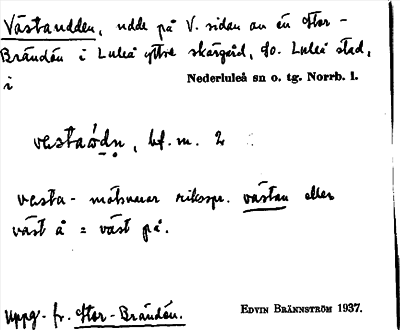 Västanudden, udde på V. sidan av ön Stor-
Brändön i Luleå yttre skärgård, SO. Luleå stad,
i Nederluleå sn o. tg. Norrb. l.
vesta , bf. m. 2
vesta- motsvarar riksspr. västan eller
väst å = väst på.
Uppg. fr. Stor-Brändön. EDVIN BRÄNNSTRÖM 1937.